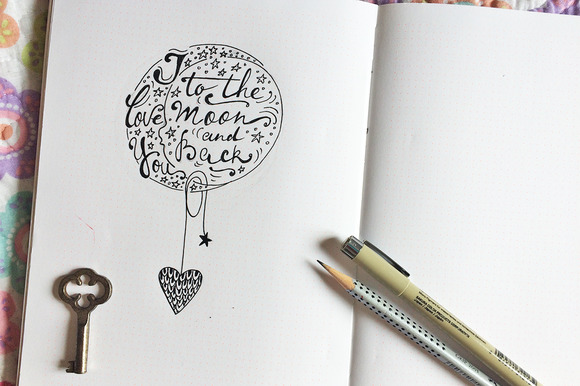 I
love
You
to the
Moon
and
Back